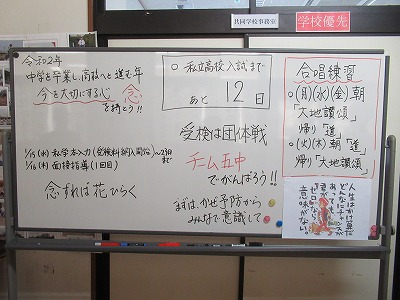 共同学校事務室
学校優先
令和2年
中学を卒業し、高校へと進む年
今を大切にする心 念
を持とう!!
○ 私立高校入試まで
あと 12日
受検は団体戦
チーム五中
でがんばろう!!
まずは、かぜ予防から
みんなで意識して
1/15(水) 私学本入力(受検料納入開始)~23日まで
1/16(木) 面接指導(1回目)
念ずれば花ひらく
合唱練習
○(月)(水)(金)朝
「大地讃頌」
帰り「道」
○(火)(木)朝「道」
帰り「大地讃頌」
人生はかけ算だ
どんなにチャンスが
あっても
君が
「ゼロ」なら
意味がない。